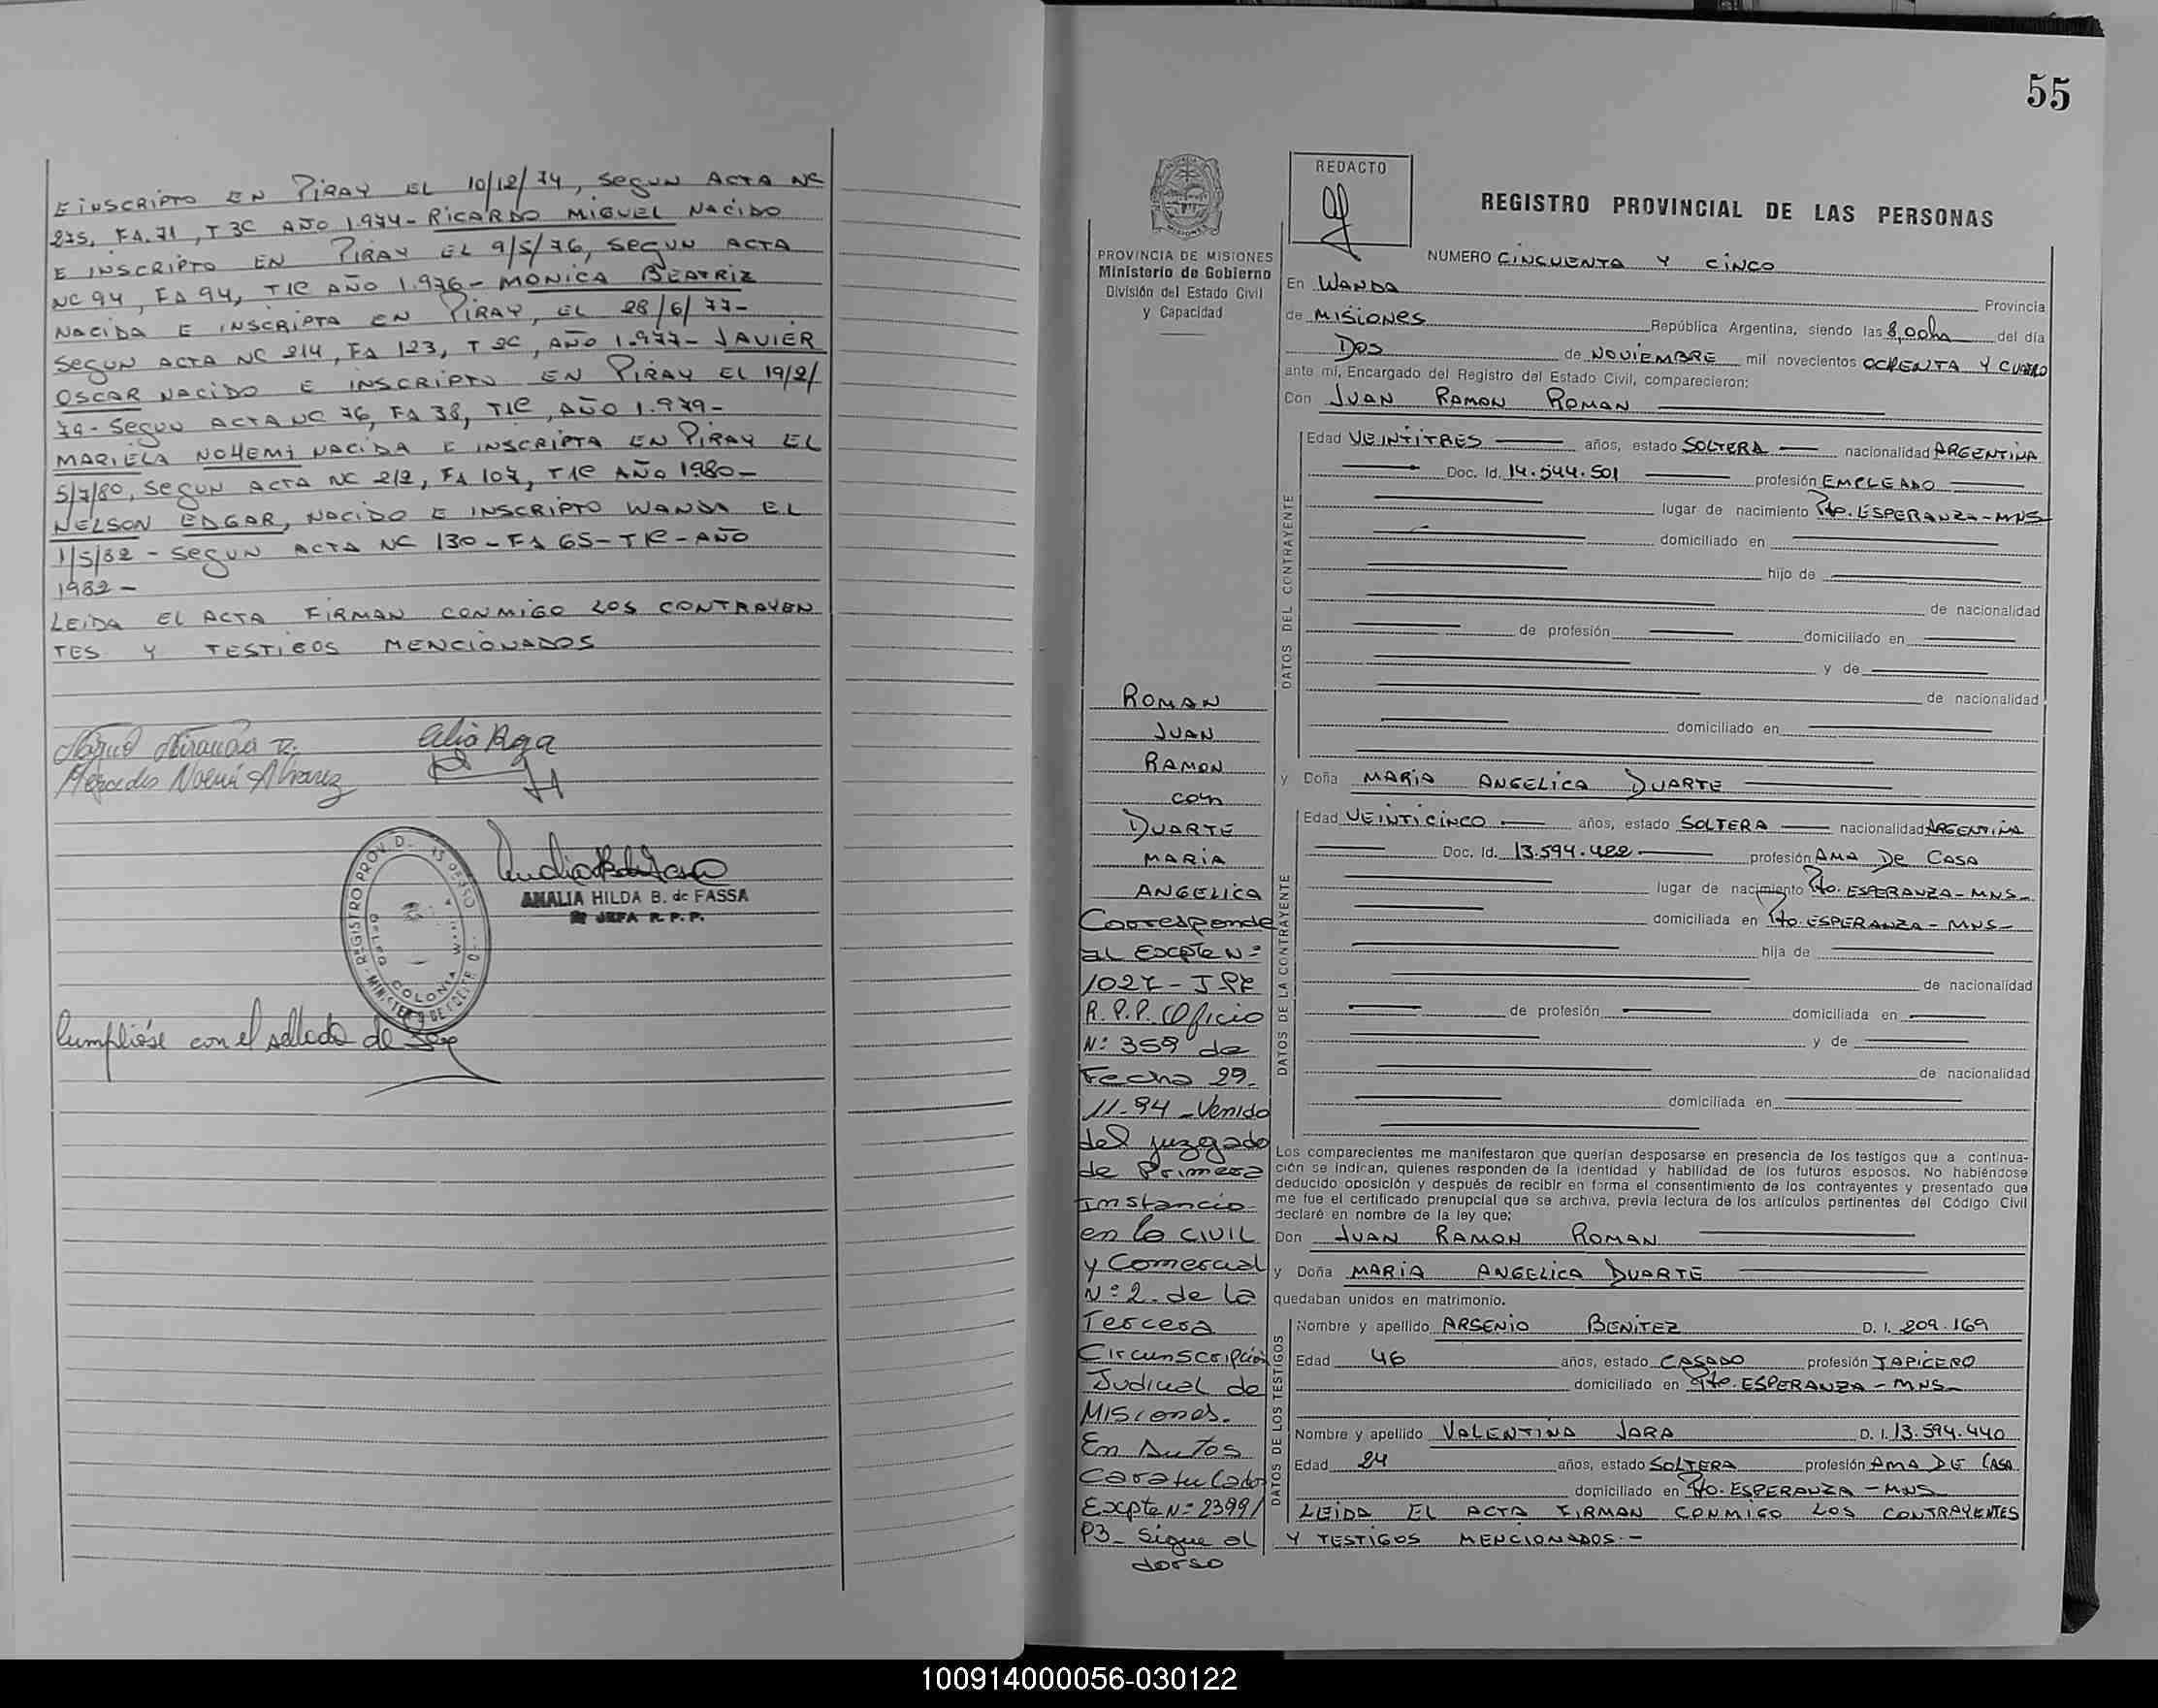 E INSCRIPTO EN PIRAY EL 10/12/74, SEGUN ACTA Nº
275, Fº 71, T 3º AÑO 1.974 - RICARDO MIGUEL NACIDO
E INSCRIPTO EN PIRAY EL 9/5/76, SEGUN ACTA
Nº 94, Fº 94, T1º AÑO 1.976 - MONICA BEATRIZ
NACIDA E INSCRIPTA EN PIRAY, EL 28/6/77 -
SEGUN ACTA Nº 214, Fº 123, T 2º, AÑO 1.977 - JAVIER
OSCAR NACIDO E INSCRIPTO EN PIRAY EL 19/2/
79 - SEGUN ACTA Nº 76, Fº 38, T1º, AÑO 1.979 -
MARIELA NOHEMI NACIDA E INSCRIPTA EN PIRAY EL
5/7/80, SEGUN ACTA Nº 212, Fº 107, T1º AÑO 1980 -
NELSON EDGAR, NACIDO E INSCRIPTO WANDA EL
1/5/82 - SEGUN ACTA Nº 130 - Fº 65 - T1º - AÑO
1982 -
LEIDA EL ACTA FIRMAN CONMIGO LOS CONTRAYEN
TES Y TESTIGOS MENCIONADOS
Miguel Miranda R.
Mercedes Noemi Alvarez
REGISTRO PROV. D.
COLONIA W
AMALIA HILDA B. de FASSA
JEFA R. P. P.
Cumplióse con el sellado de Ley
55
PROVINCIA DE MISIONES
Ministerio de Gobierno
División del Estado Civil
y Capacidad
ROMAN
JUAN
RAMON
con
DUARTE
MARIA
ANGELICA
Corresponde
al Excpte Nº
1027 -
R.P.P. Oficio
Nº 359 de
Fecha 29.
11-94 - Venido
del juzgado
de Primera
Instancia
en lo CIVIL
y Comercial
Nº 2. de la
Tercera
Circunscripción
Judicial de
Misiones.
En Autos
Caratulados
Excpte Nº 2399/
93 - Sigue al
dorso
REDACTO
REGISTRO PROVINCIAL DE LAS PERSONAS
NUMERO CINCUENTA Y CINCO
En WANDA Provincia
de MISIONES República Argentina, siendo las 8,00hs del día
DOS de NOVIEMBRE mil novecientos OCHENTA Y CUATRO
ante mí, Encargado del Registro del Estado Civil, comparecieron:
Don JUAN RAMON ROMAN
DATOS DEL CONTRAYENTE
Edad VEINTITRES años, estado SOLTERA nacionalidad ARGENTINA
Doc. Id. 14.544.501 profesión EMPLEADO
lugar de nacimiento Pto. ESPERANZA - MNS
domiciliado en
hijo de
de nacionalidad
de profesión domiciliado en
y de
de nacionalidad
domiciliado en
y Doña MARIA ANGELICA DUARTE
DATOS DE LA CONTRAYENTE
Edad VEINTICINCO años, estado SOLTERA nacionalidad ARGENTINA
Doc. Id. 13.594.422 profesión AMA DE CASA
lugar de nacimiento Pto. ESPERANZA - MNS -
domiciliada en Pto. ESPERANZA - MNS -
hija de
de nacionalidad
de profesión domiciliada en
y de
de nacionalidad
domiciliada en
Los comparecientes me manifestaron que querían desposarse en presencia de los testigos que a continua-
ción se indican, quienes responden de la identidad y habilidad de los futuros esposos. No habiéndose
deducido oposición y después de recibir en forma el consentimiento de los contrayentes y presentado que
me fue el certificado prenupcial que se archiva, previa lectura de los artículos pertinentes del Código Civil
declaré en nombre de la ley que:
Don JUAN RAMON ROMAN
y Doña MARIA ANGELICA DUARTE
quedaban unidos en matrimonio.
DATOS DE LOS TESTIGOS
Nombre y apellido ARSENIO BENITEZ D. I. 209.169
Edad 46 años, estado CASADO profesión TAPICERO
domiciliado en Pto. ESPERANZA - MNS -
Nombre y apellido VALENTINA JARA D. I. 13.594.440
Edad 24 años, estado SOLTERA profesión AMA DE CASA
domiciliado en Pto. ESPERANZA - MNS
LEIDA EL ACTA FIRMAN CONMIGO LOS CONTRAYENTES
Y TESTIGOS MENCIONADOS. -
100914000056-030122